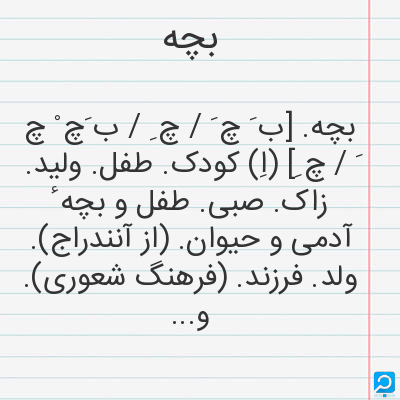 بچه
بچه. [ب َ چ َ / چ ِ / ب َچ ْ چ
َ / چ ِ] (اِ) کودک. طفل. ولید.
زاک. صبی. طفل و بچه ٔ
آدمی و حیوان. (از آنندراج).
ولد. فرزند. (فرهنگ شعوری).
و...